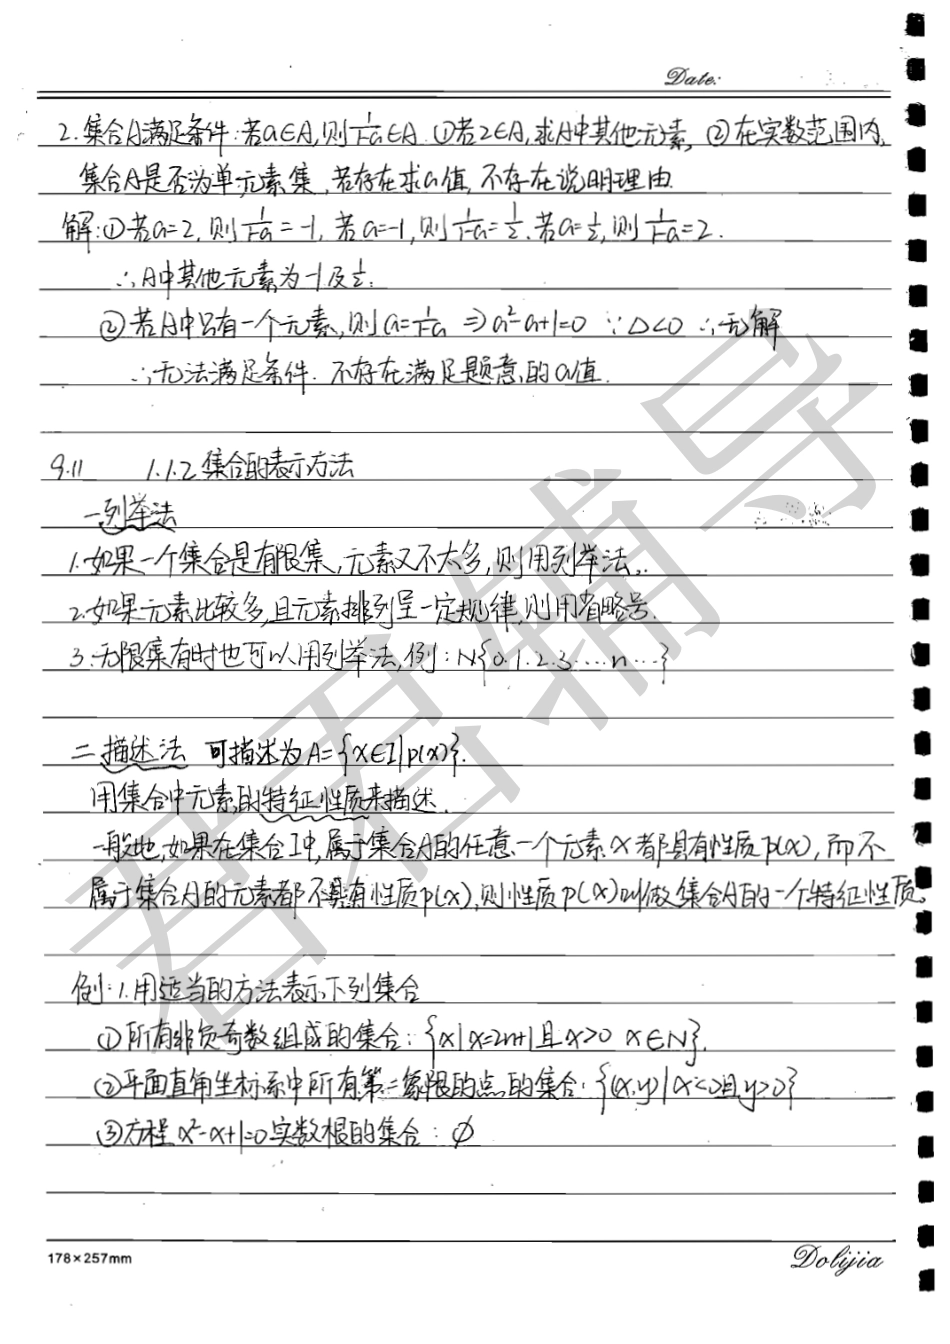 Date:
2.集合A满足条件:若a∈A,则1/(1-a)∈A.①若2∈A,求A中其他元素.②在实数范围内,
集合A是否为单元素集,若存在求a值,不存在说明理由.
解:①若a=2,则1/(1-a)=-1,若a=-1,则1/(1-a)=1/2.若a=1/2,则1/(1-a)=2.
∴A中其他元素为-1及1/2.
②若A中只有一个元素,则a=1/(1-a)⇒a²-a+1=0 ∵Δ<0 ∴无解
∴无法满足条件.不存在满足题意的a值.
9.11 1.1.2集合的表示方法
一列举法
1.如果一个集合是有限集,元素又不太多,则用列举法.
2.如果元素比较多,且元素排列呈一定规律,则用省略号.
3.无限集有时也可以用列举法,例:N{0.1.2.3....n...}
二描述法 可描述为A={x∈I|p(x)}.
用集合中元素的特征性质来描述.
一般地,如果在集合I中,属于集合A的任意一个元素x都具有性质p(x),而不
属于集合A的元素都不具有性质p(x),则性质p(x)叫做集合A的一个特征性质.
例:1.用适当的方法表示下列集合
①所有非负奇数组成的集合:{x|x=2n+1且x>0 x∈N}.
②平面直角坐标系中所有第二象限的点的集合:{(x,y)|x<0且y>0}
③方程x²-x+1=0实数根的集合:∅
178×257mm
Dolijia
君君辅导